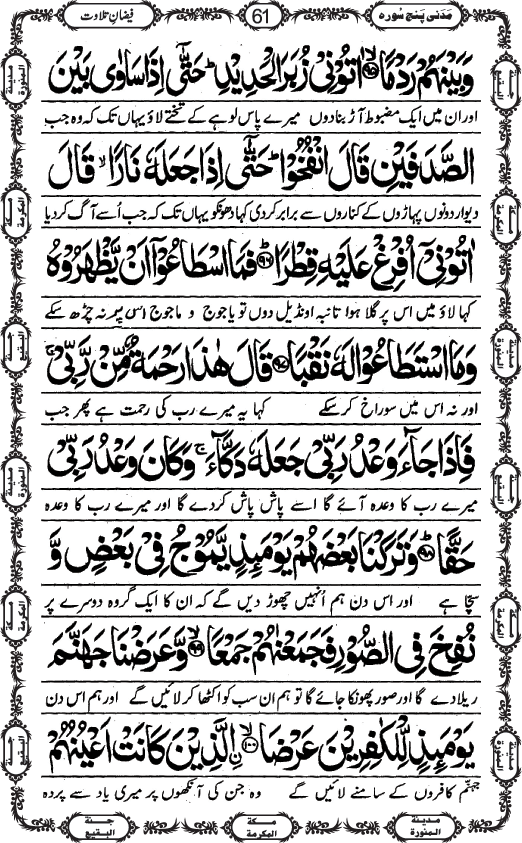 مَدَنی پنج سُورہ 61 فیضانِ تلاوت
وَبَیْنَهُمْ رَدْمًا ﴿۹۵﴾ اٰتُوْنِیْ زُبَرَ الْحَدِیْدِؕ حَتّٰۤى اِذَا سَاوٰى بَیْنَ
اور ان میں ایک مضبوط آڑ بنادوں میرے پاس لوہے کے تختے لاؤ یہاں تک کہ وہ جب
الصَّدَفَیْنِ قَالَ انْفُخُوْاؕ حَتّٰۤى اِذَا جَعَلَهٗ نَارًاۙ قَالَ
دیوار دونوں پہاڑوں کے کناروں سے برابر کردی کہا دھونکو یہاں تک کہ جب اُسے آگ کردیا
اٰتُوْنِیْۤ اُفْرِغْ عَلَیْهِ قِطْرًا ﴿۹۶﴾ فَمَا اسْطَاعُوْۤا اَنْ یَّظْهَرُوْهُ
کہا لاؤ میں اس پر گلا ہوا تانبہ اونڈیل دوں تو یاجوج و ماجوج اس پر نہ چڑھ سکے
وَمَا اسْتَطَاعُوْا لَهٗ نَقْبًا ﴿۹۷﴾ قَالَ هٰذَا رَحْمَةٌ مِّنْ رَّبِّیْۚ
اور نہ اس میں سوراخ کرسکے کہا یہ میرے رب کی رحمت ہے پھر جب
فَاِذَا جَآءَ وَعْدُ رَبِّیْ جَعَلَهٗ دَكَّآءَۚ وَكَانَ وَعْدُ رَبِّیْ
میرے رب کا وعدہ آئے گا اسے پاش پاش کردے گا اور میرے رب کا وعدہ
حَقًّا ﴿۹۸﴾ وَتَرَكْنَا بَعْضَهُمْ یَوْمَىِٕذٍ یَّمُوْجُ فِیْ بَعْضٍ وَّ
سچا ہے اور اس دن ہم اُنہیں چھوڑ دیں گے کہ ان کا ایک گروہ دوسرے پر
نُفِخَ فِی الصُّوْرِ فَجَمَعْنٰهُمْ جَمْعًا ﴿۹۹﴾ وَّعَرَضْنَا جَهَنَّمَ
ریلا دے گا اور صور پھونکا جائے گا تو ہم ان سب کو اکٹھا کر لائیں گے اور ہم اس دن
یَوْمَىِٕذٍ لِّلْكٰفِرِیْنَ عَرْضَا ﴿۱۰۰﴾ ِ۟الَّذِیْنَ كَانَتْ اَعْیُنُهُمْ
جہنّم کافروں کے سامنے لائیں گے وہ جن کی آنکھوں پر میری یاد سے پردہ
مدینة المنورة
مكة المكرمة
جنة البقيع
مدینة المنورة
مكة المكرمة
جنة البقيع
جنة البقيع
مكة المكرمة
مدینة المنورة
جنة البقيع
مكة المكرمة
مدینة المنورة
مدینة المنورة
مكة المكرمة
جنة البقيع